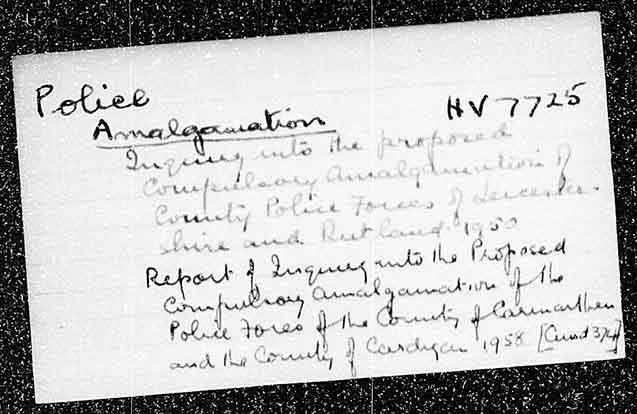 Police
HV 7725
Amalgamation
Inquiry into the proposed
Compulsory Amalgamation of
County Police Forces of Leicester-
shire and Rutland 1950
Report of Inquiry into the Proposed
Compulsory Amalgamation of the
Police Forces of the County of Carmarthen
and the County of Cardigan 1958